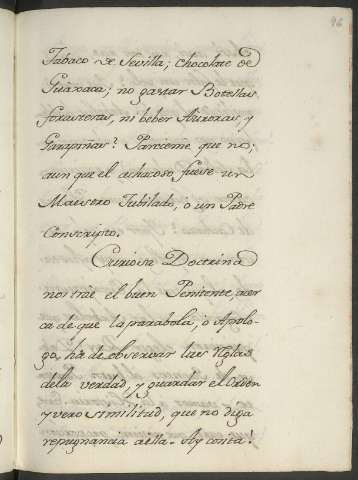 96
Tabaco de Sevilla; chocolate de
Guaxaca; no gastar Botellas
forasteras, ni beber Auroras, y
Garapiñas? Pareceme que no;
aun que el achacoso fuese un
Maestro Jubilado, o un Padre
Conscripto.
Curiosa Doctrina
nos trae el buen Penitente, acer
ca de que la parabola, o Apolo-
go, ha de observar las reglas
dela verdad, y guardar el Orden
y vero similitud, que no diga
repugnancia aella. Ay conta!